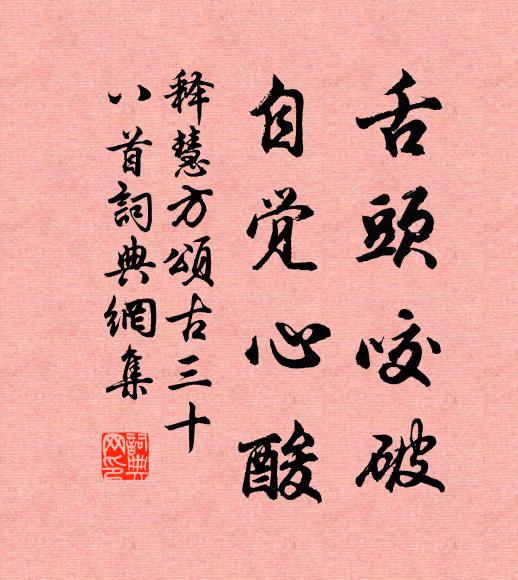 舌頭咬破
自觉心酸
释慧方頌古三十
八首詞典網集
詞典
网印